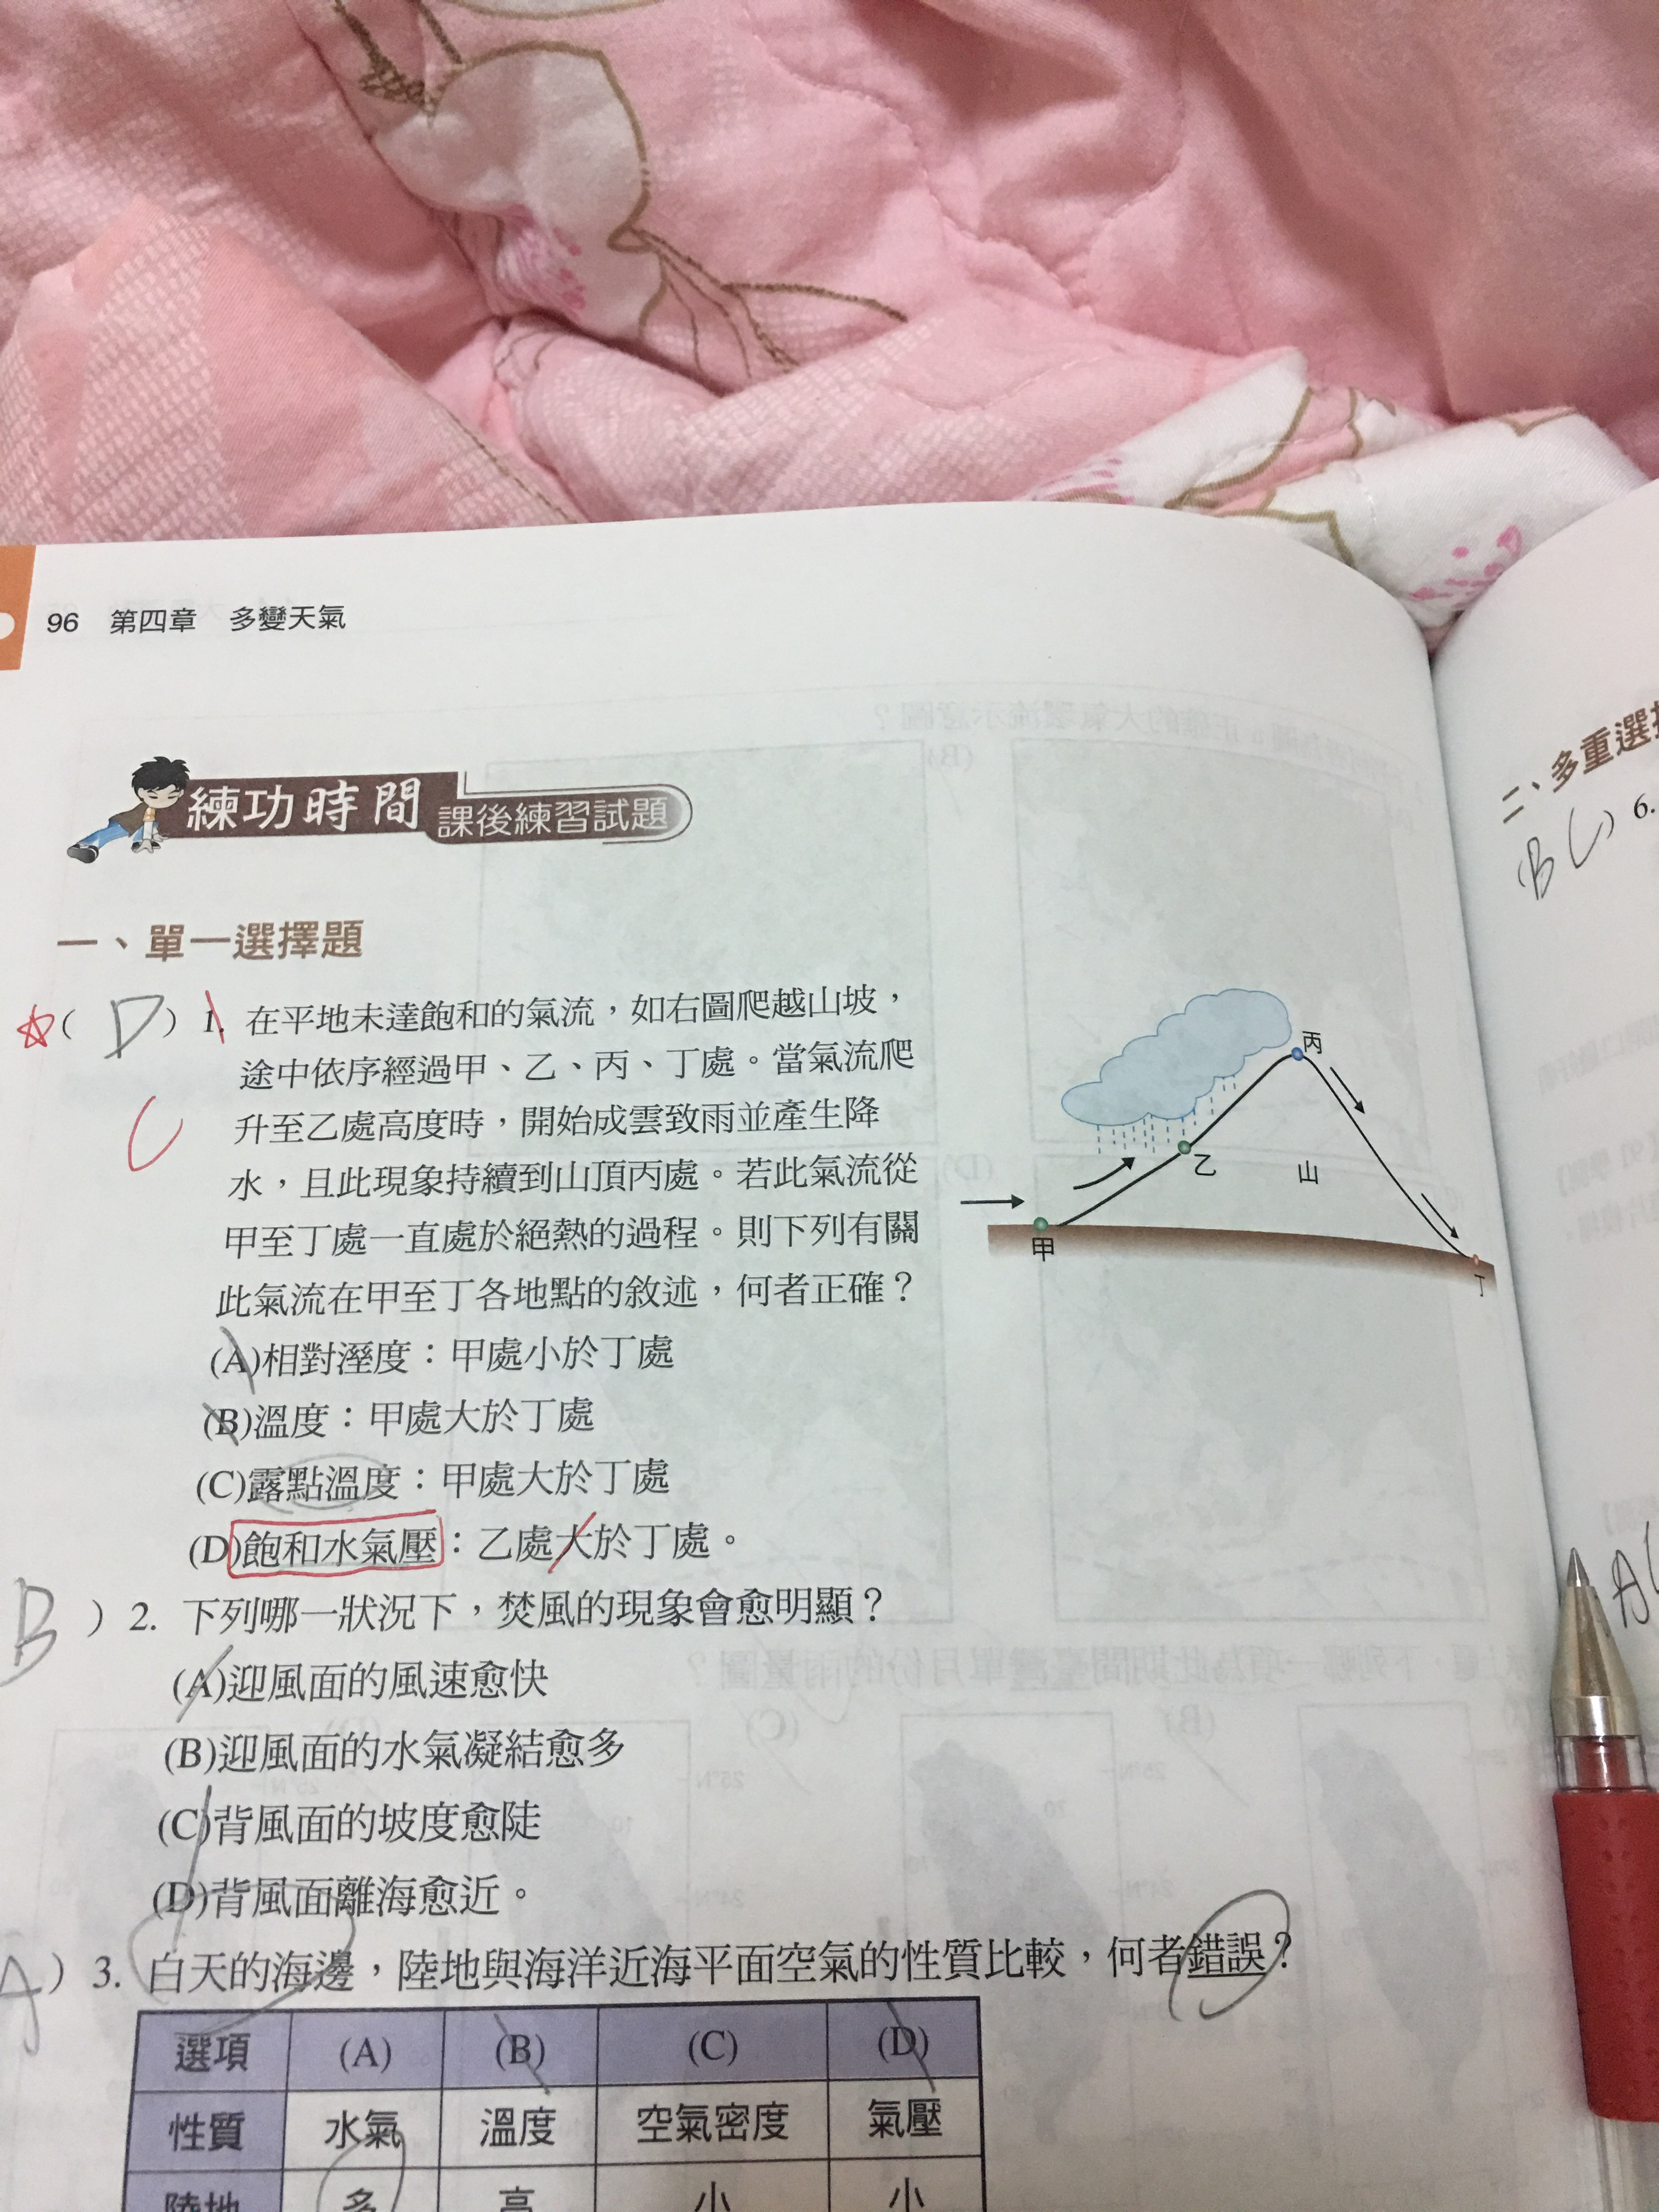 96 第四章 多變天氣
練功時間 課後練習試題
一、單一選擇題
☆( D ) 1. 在平地未達飽和的氣流，如右圖爬越山坡，
C
途中依序經過甲、乙、丙、丁處。當氣流爬
升至乙處高度時，開始成雲致雨並產生降
水，且此現象持續到山頂丙處。若此氣流從
甲至丁處一直處於絕熱的過程。則下列有關
此氣流在甲至丁各地點的敘述，何者正確？
(A)相對溼度：甲處小於丁處
(B)溫度：甲處大於丁處
(C)露點溫度：甲處大於丁處
(D)飽和水氣壓：乙處大於丁處。
丙
乙
山
甲
丁
B ) 2. 下列哪一狀況下，焚風的現象會愈明顯？
(A)迎風面的風速愈快
(B)迎風面的水氣凝結愈多
(C)背風面的坡度愈陡
(D)背風面離海愈近。
A ) 3. 白天的海邊，陸地與海洋近海平面空氣的性質比較，何者錯誤？
選項 (A) (B) (C) (D)
性質 水氣 溫度 空氣密度 氣壓
陸地 多 高 小 小
二、多重選
(BC) 6.